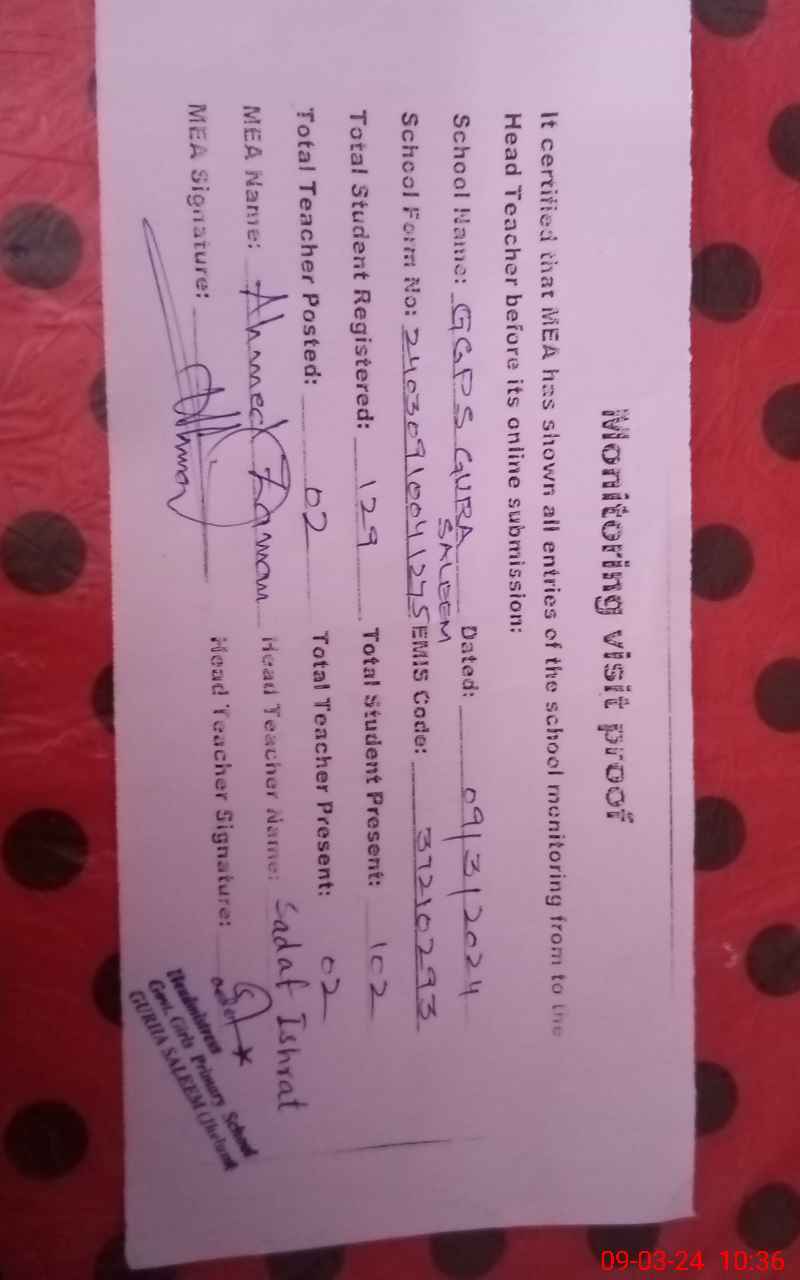 Monitoring visit proof
It certified that MEA has shown all entries of the school monitoring from to the
Head Teacher before its online submission:
School Name: GGPS GURA SALEEM Dated: 09/3/2024
School Form No: 24030910041275 EMIS Code: 37210293
Total Student Registered: 129 Total Student Present: 102
Total Teacher Posted: 02 Total Teacher Present: 02
MEA Name: Ahmed Zaman Head Teacher Name: Sadaf Ishrat
MEA Signature: Head Teacher Signature:
Headmistress
Govt. Girls Primary School
GURHA SALEEM (Jhelum)
09-03-24 10:36